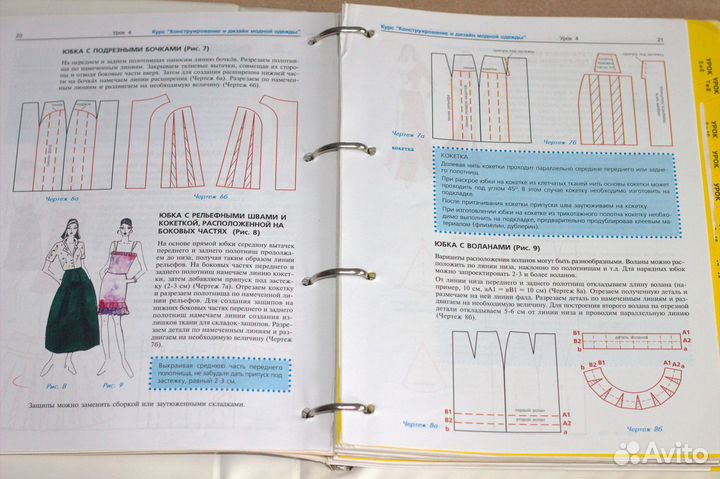 20
Урок 4
Курс "Конструирование и дизайн модной одежды"
ЮБКА С ПОДРЕЗНЫМИ БОЧКАМИ (Рис. 7)
На переднем и заднем полотнищах наносим линию бочков. Разрезаем полотнища по намеченным линиям. Закрываем талиевые вытачки, совмещая их стороны и отводя боковые части вверх. Затем для создания расширения нижней части на бочках намечаем линии расширения (Чертеж 6а). Разрезаем по намеченным линиям и раздвигаем на необходимую величину (Чертеж 6б).
Чертеж 6а
Чертеж 6б
ЮБКА С РЕЛЬЕФНЫМИ ШВАМИ И
КОКЕТКОЙ, РАСПОЛОЖЕННОЙ НА
БОКОВЫХ ЧАСТЯХ (Рис. 8)
На основе прямой юбки середину вытачек
переднего и заднего полотнищ продолжа-
ем до низа, получая таким образом линии
рельефов. На боковых частях переднего и
заднего полотнищ намечаем линию кокет-
ки, затем добавляем припуск под застеж-
ку (2-3 см) (Чертеж 7а). Отрезаем кокетку
и разрезаем полотнища по намеченной ли-
нии рельефов. Для создания защипов на
нижних боковых частях переднего и заднего
полотнищ намечаем линии создания из-
лишков ткани для складок-защипов. Разре-
заем детали по намеченным линиям и раз-
двигаем на необходимую величину (Чертеж
7б).
Рис. 8
Рис. 9
Выкраивая среднюю часть переднего
полотнища, не забудьте дать припуск под
застежку, равный 2-3 см.
Защипы можно заменить сборкой или заутюженными складками.
Курс "Конструирование и дизайн модной одежды"
Урок 4
21
Чертеж 7а
Чертеж 7б
кокетка
КОКЕТКА
Долевая нить кокетки проходит параллельно середине переднего или задне-
го полотнищ.
При раскрое юбки на кокетке из клетчатых тканей нить основы кокетки может
проходить под углом 45°. В этом случае кокетку необходимо изготовить на
подкладке.
После притачивания кокетки припуск шва заутюживаем на кокетку.
При изготовлении юбки на кокетке из трикотажного полотна кокетку необхо-
димо выполнить на подкладке, предварительно продублировав клеевым ма-
териалом (флизелин, дублерин).
ЮБКА С ВОЛАНАМИ (Рис. 9)
Варианты расположения воланов могут быть разнообразными. Воланы можно рас-
положить по линии низа, наклонно по полотнищам и т.д. Для нарядных юбок
можно запроектировать 2-3 и более воланов.
От линии низа переднего и заднего полотнищ откладываем длину волана (на-
пример, 10 см, аА1 = вВ1 = 10 см) (Чертеж 8а). Отрезаем полученную деталь и
размечаем на ней линии фалд. Разрезаем деталь по намеченным линиям и раз-
двигаем на необходимую величину. Для построения второго волана на отрезной
детали откладываем 5-6 см от линии низа и проводим параллельную линию
(Чертеж 8б).
B1
B2
b
первый волан
второй волан
A1
A2
a
Чертеж 8а
B1
B2
b
деталь воланов
A1
A2
a
b
B2
B1
A1
A2
a
Чертеж 8б
УРОК
УРОК
УРОК
УРОК
УРОК
Avito